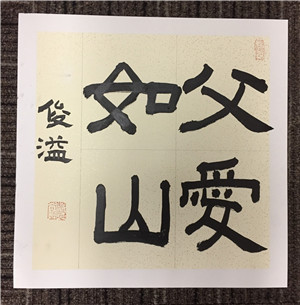 父愛
如山
俊溢